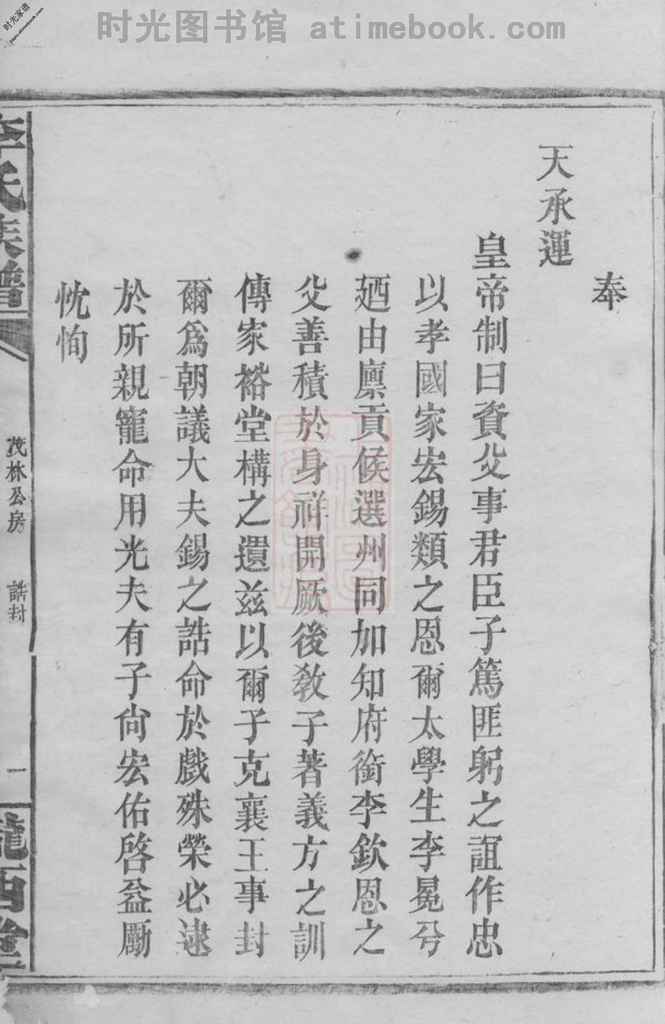 时光图书馆 atimebook.com
时光家谱
奉
天承運
皇帝制曰資父事君臣子篤匪躬之誼作忠
以孝國家宏錫類之恩爾太學生李冕兮
廼由廪貢候選州同加知府銜李欽恩之
父善積於身祥開厥後教子著義方之訓
傳家裕堂構之遺兹以爾子克襄王事封
爾爲朝議大夫錫之誥命於戲殊榮必逮
於所親寵命用光夫有子尙宏佑啓益勵
忱恂
李氏族譜
茂林公房
誥封
一
隴西堂